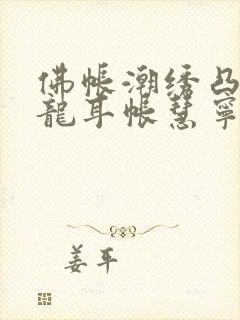 佛帐潮绣凸
龍耳帐慧寧
姜平